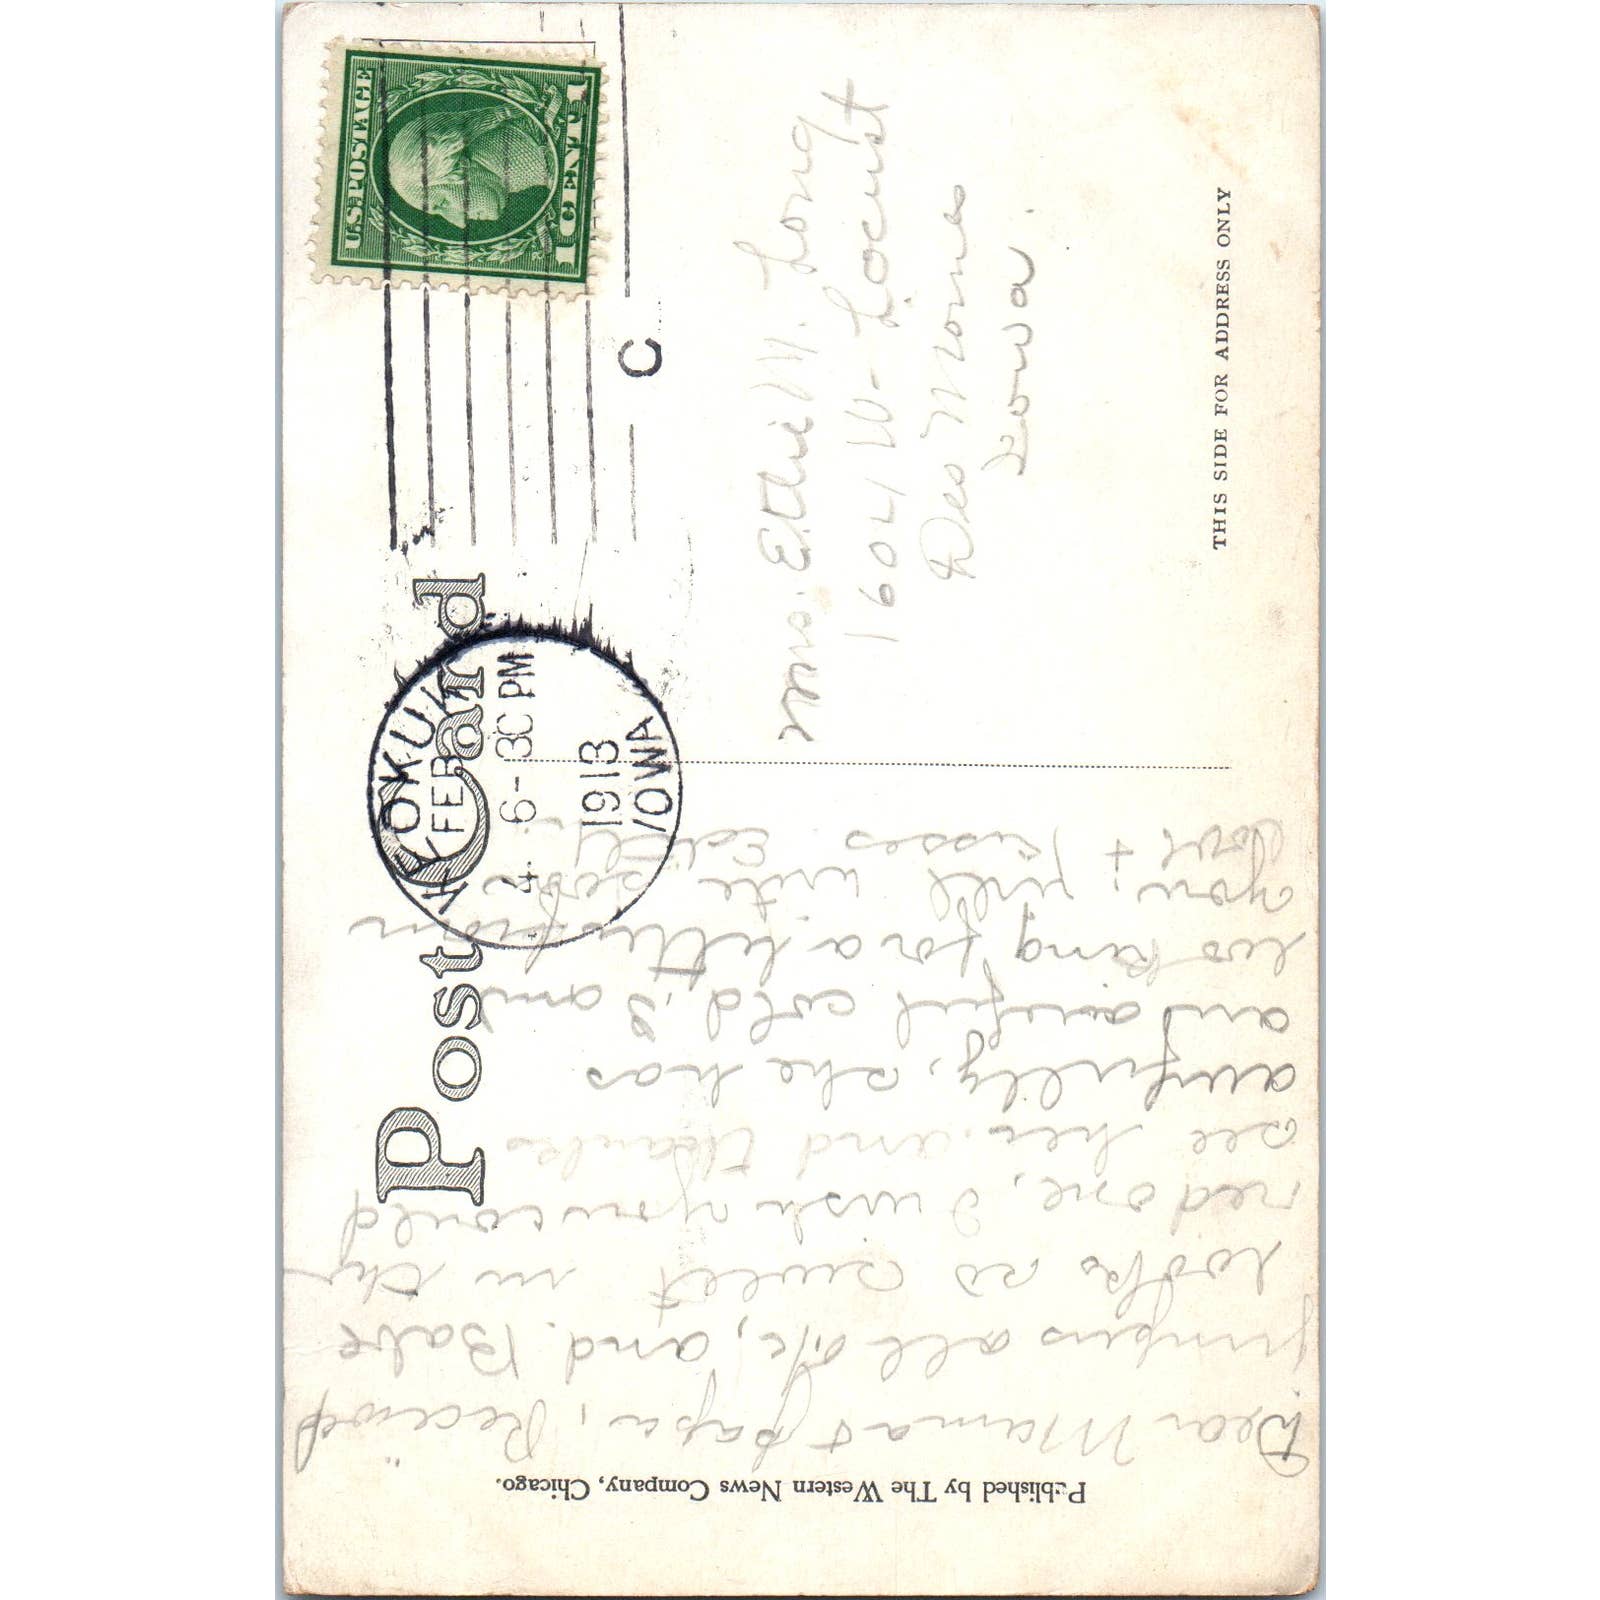 Post Card
U.S. POSTAGE
1 CENT 1
KEOKUK
FEB
4
6-30 PM
1913
IOWA
C
Mrs. Ethie M. Long
1604 W. Locust
Des Moines
Iowa.
THIS SIDE FOR ADDRESS ONLY
Published by The Western News Company, Chicago.
Dear Mama & papa, Received
all O/K, and Babe
looks so sweet in the
red one, I wish you could
see her and thanks
awfully, she has
an awful cold, I am
looking for a letter from
you, will write soon
love + kisses Edith